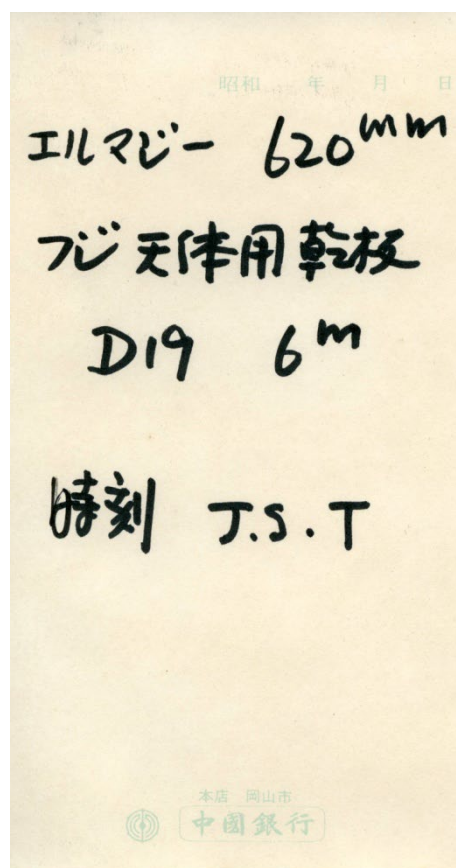 昭和 年 月 日
エルマジー 620mm
フジ天体用乾板
D19 6m
時刻 J.S.T
本店 岡山市
中國銀行